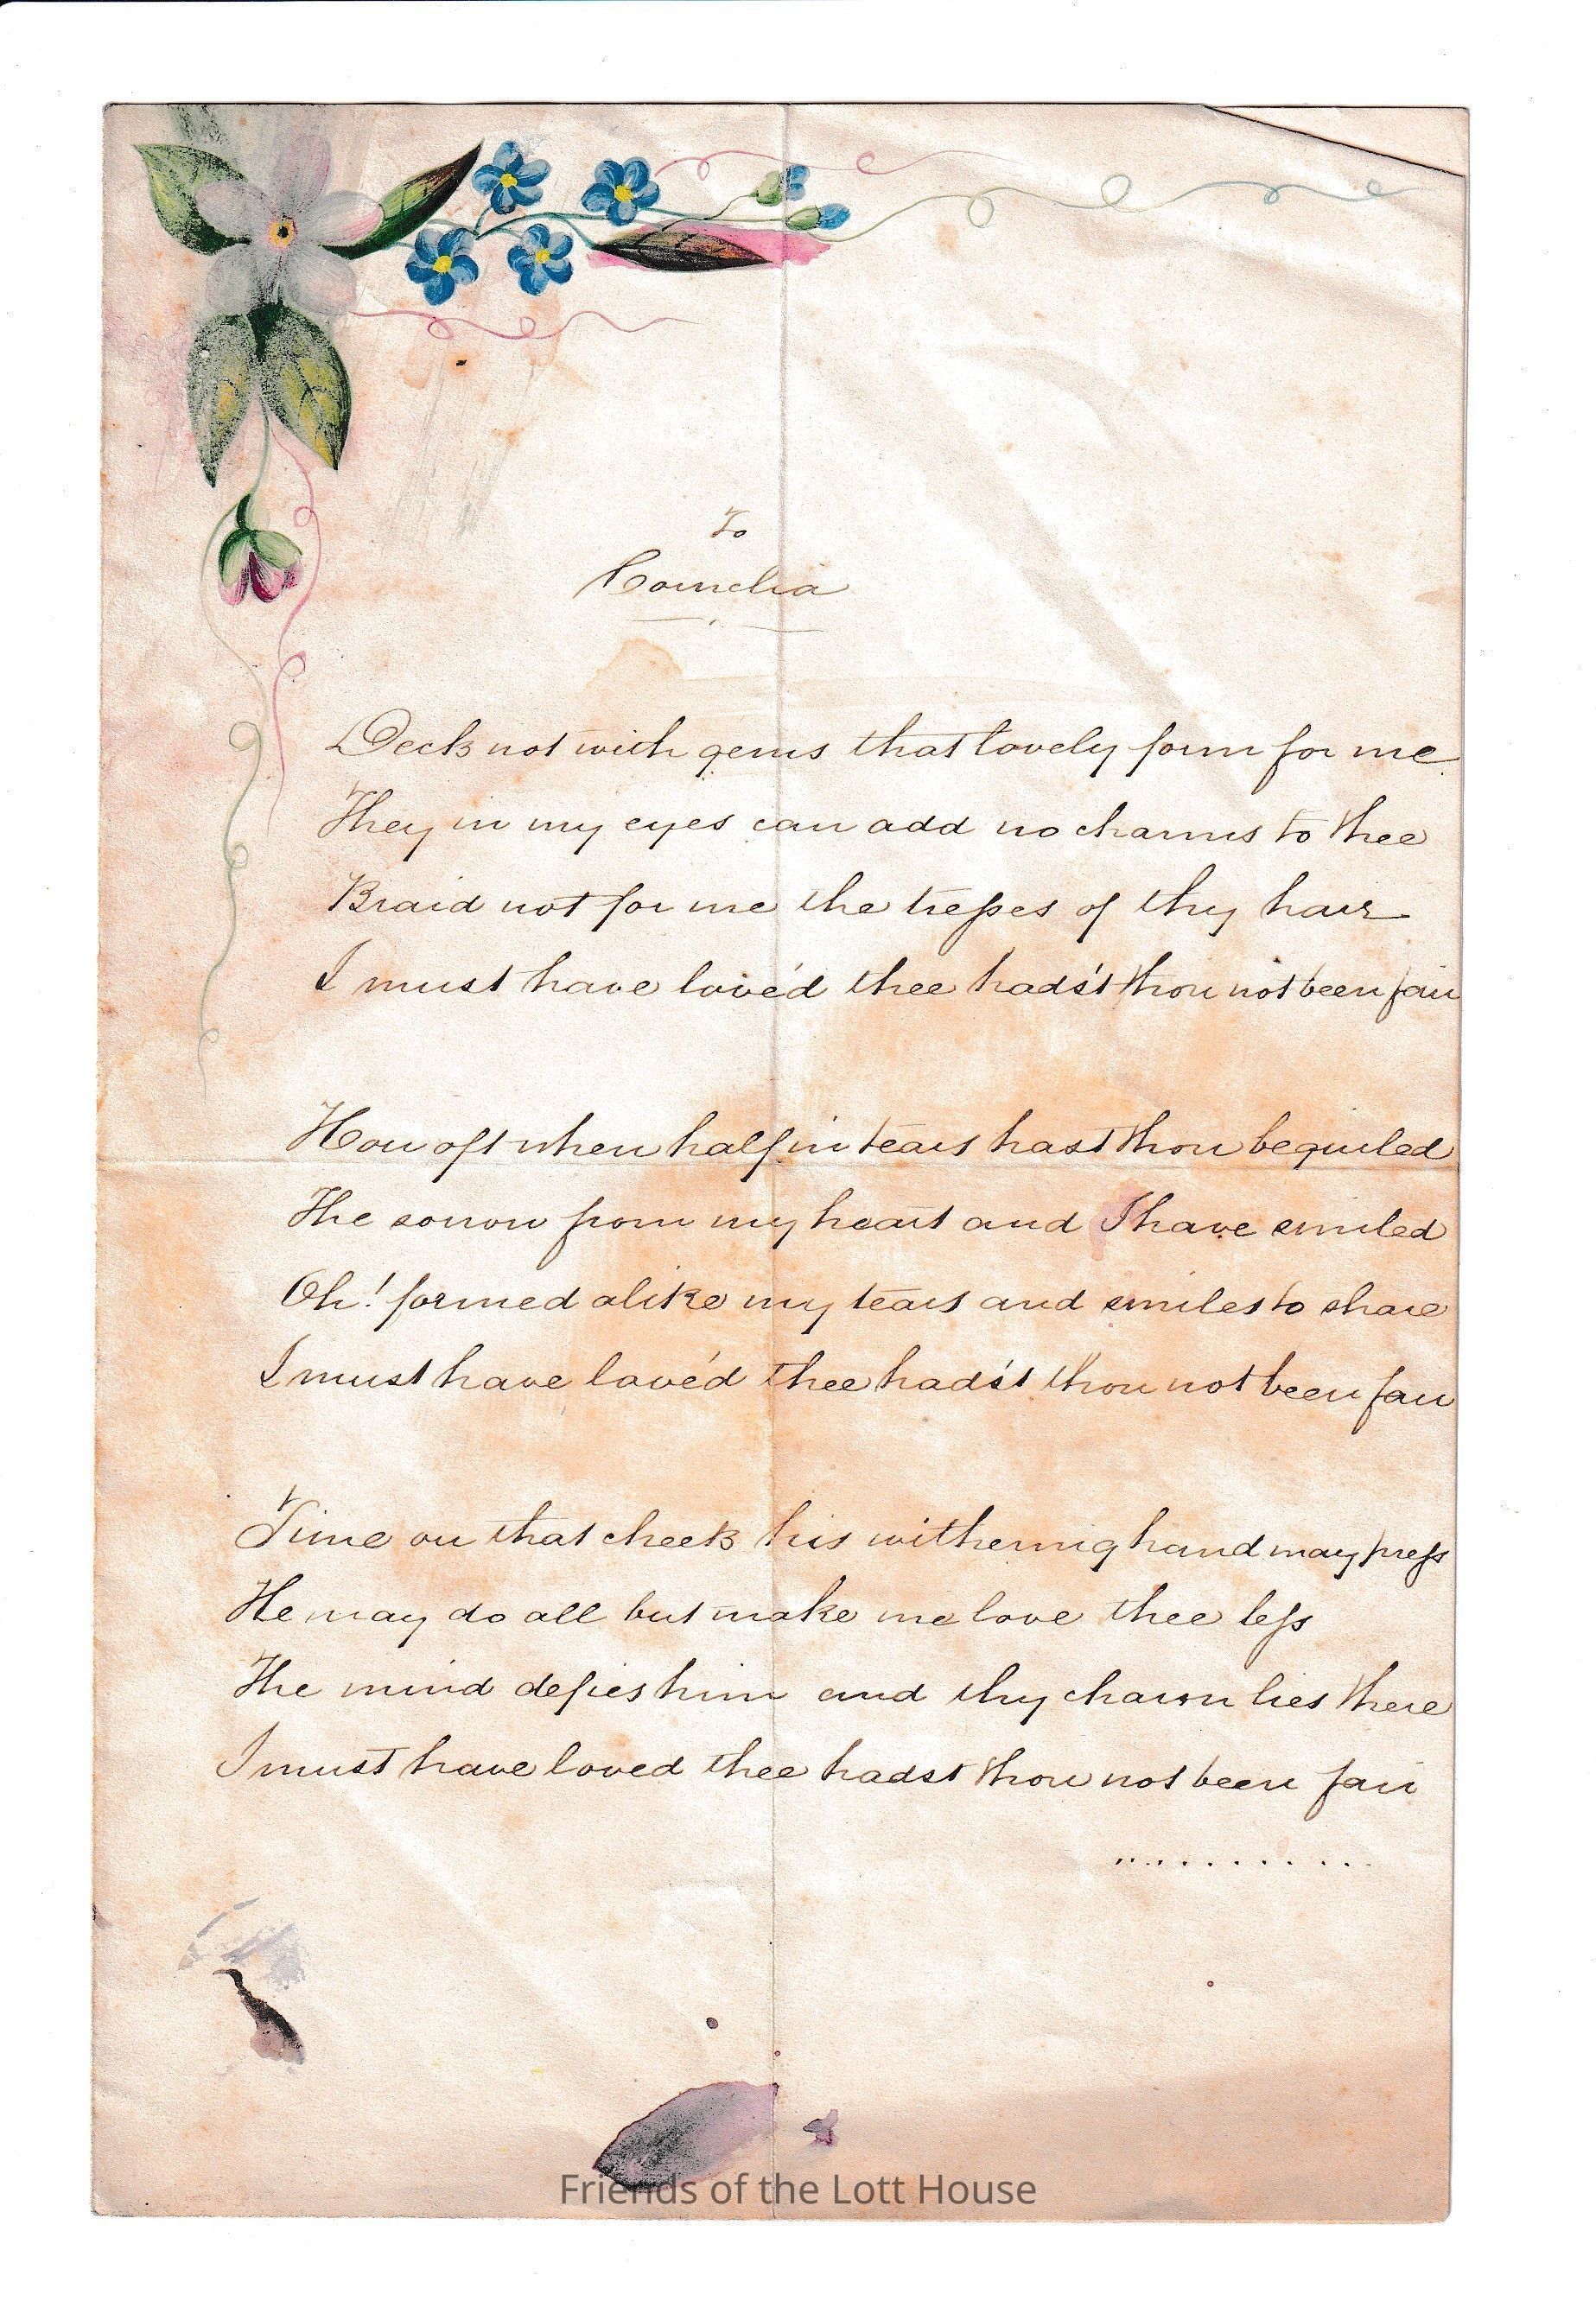 To
Cornelia
Deck not with gems that lovely form for me
They in my eyes can add no charms to thee
Braid not for me the treſses of thy hair
I must have love'd thee hads't thou not been fair
How oft when half in tears hast thou beguiled
The sorrow from my heart and I have smiled
Oh! formed alike my tears and smiles to share
I must have love'd thee hads't thou not been fair
Time on that cheek his withering hand may preſs
He may do all but make me love thee leſs
The mind defies him and thy charm lies there
I must have loved thee hadst thou not been fair
Friends of the Lott House